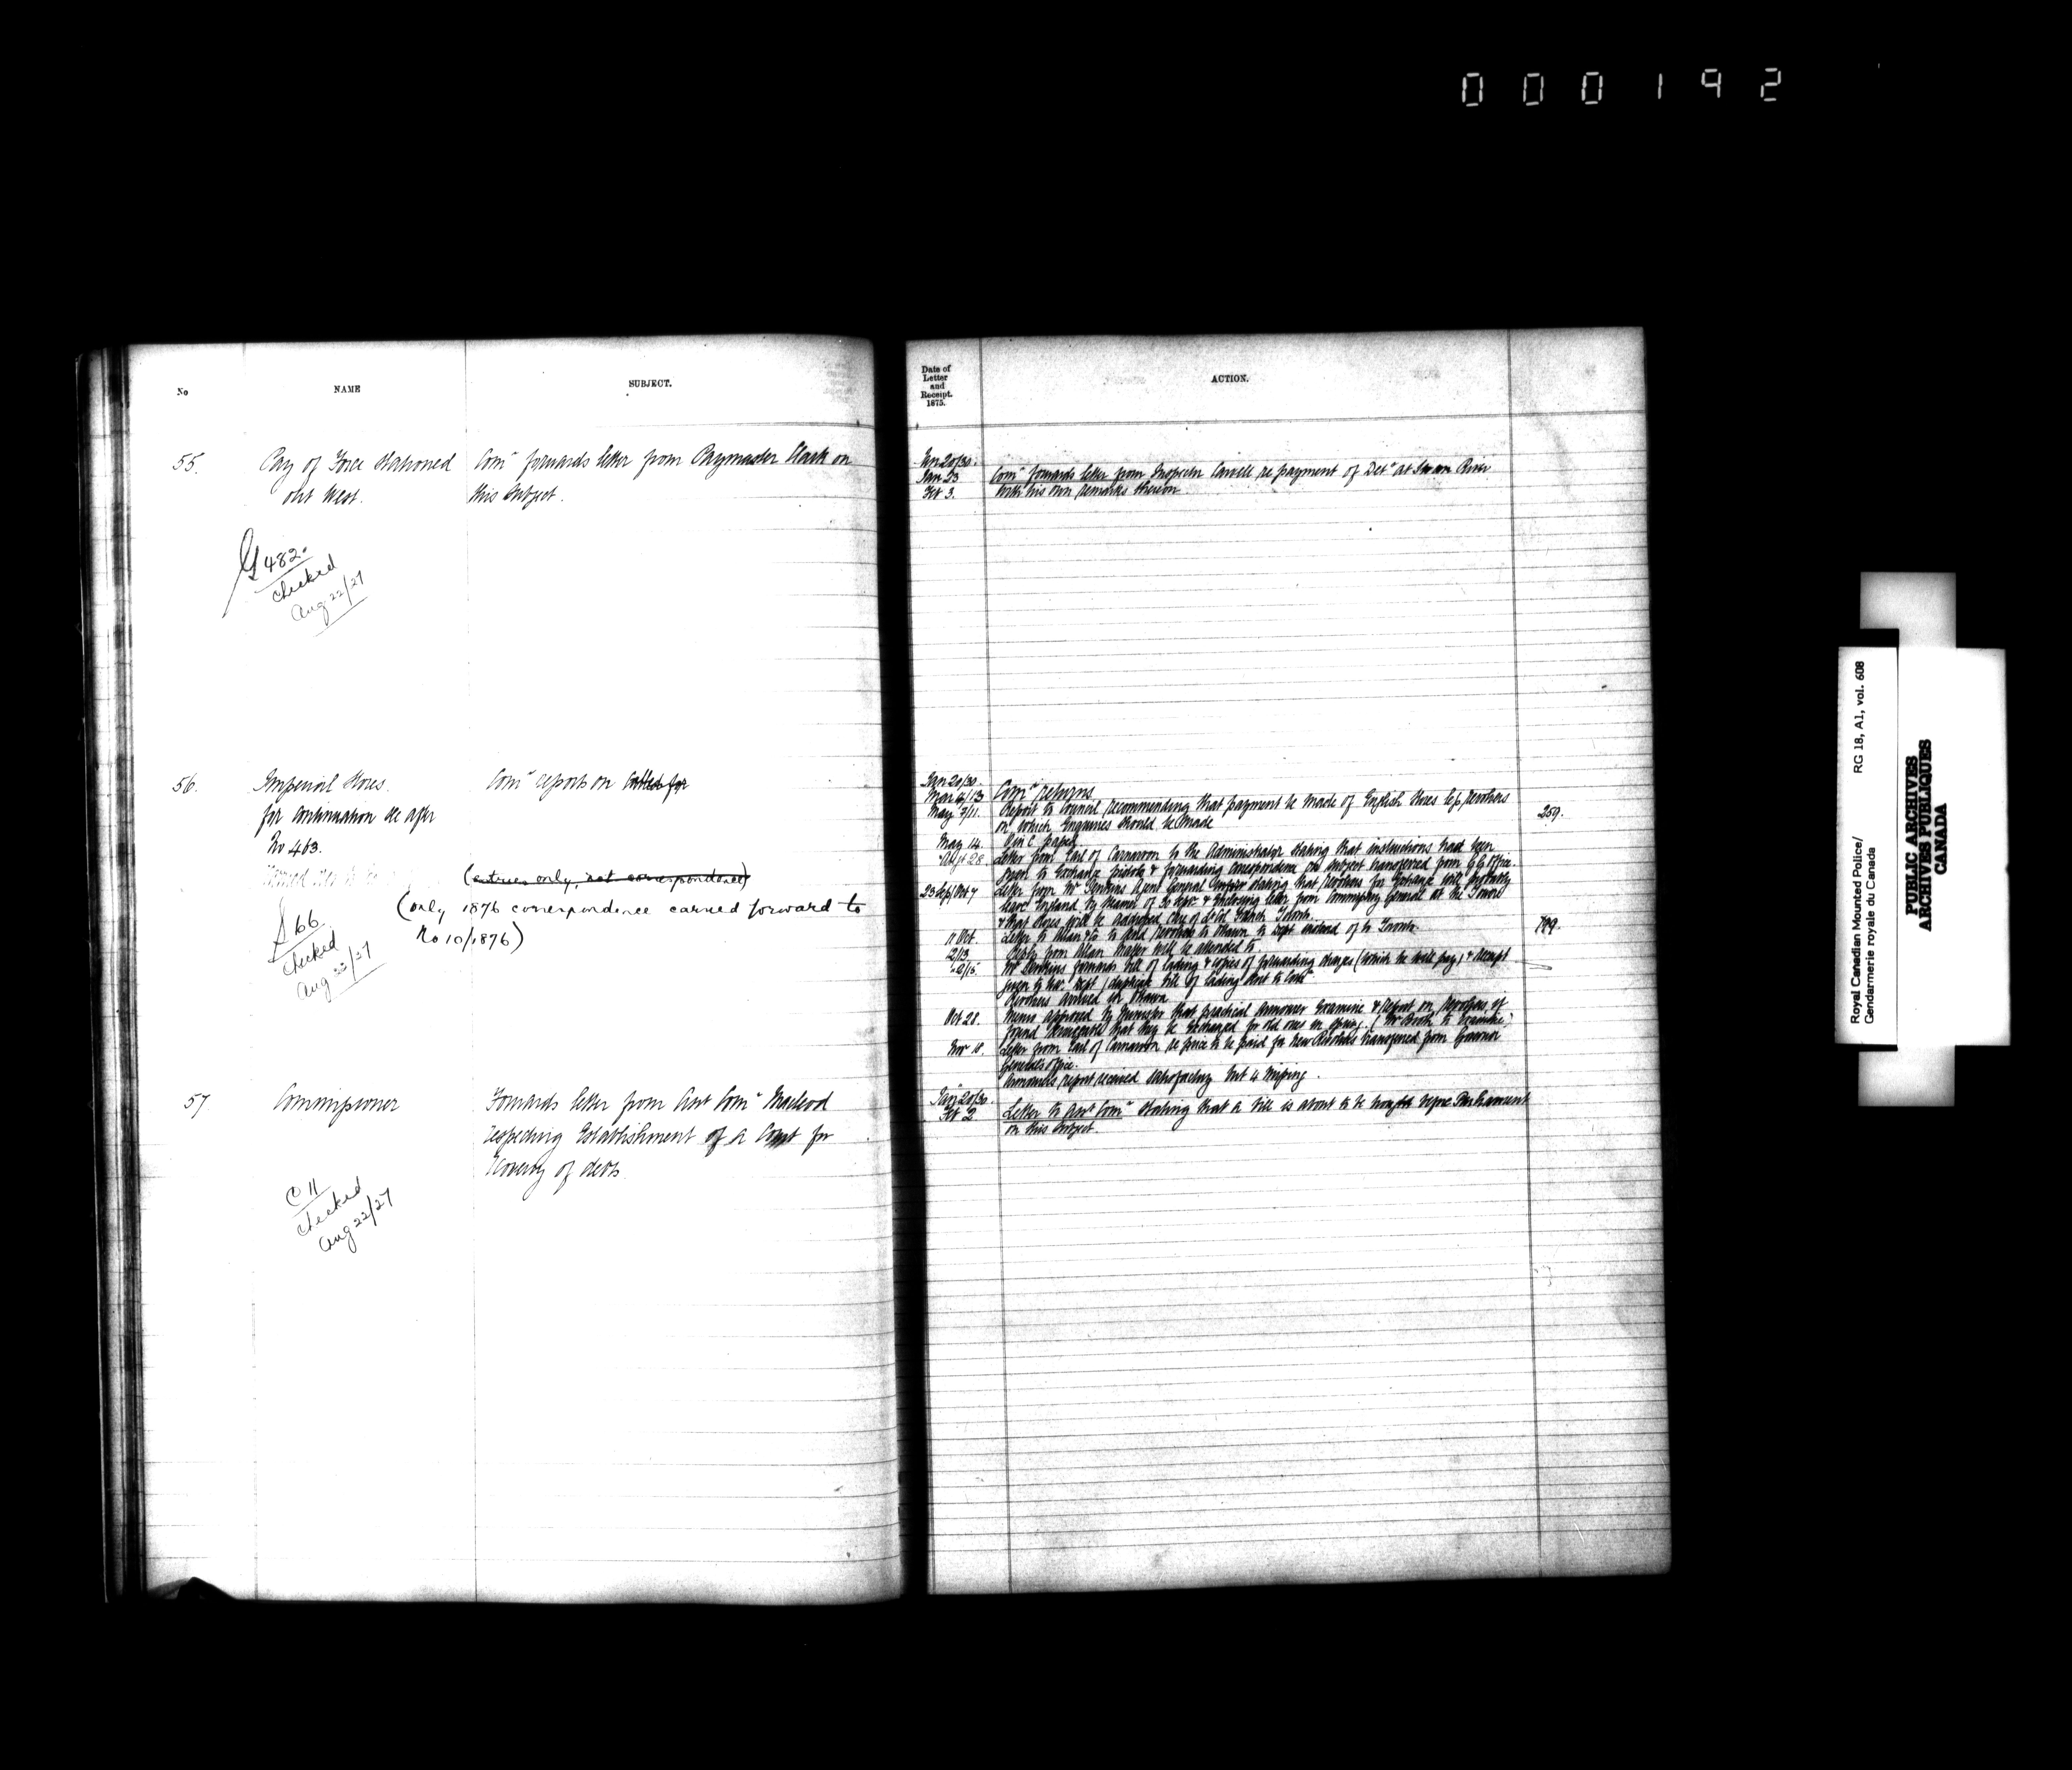 000192
No
NAME
SUBJECT.
55.
Pay of Force stationed
out West.
Comr forwards letter from Paymaster Clark on
this subject.
G 482.
Checked
Aug 22/27
56.
Imperial Stores.
for continuation see after
No 463.
Comr reports on
(entries only, not correspondence)
(only 1876 correspondence carried forward to
No 10/1876)
S 66
Checked
Aug 22/27
57
Commissioner
Forwards letter from Asst Comr Macleod
respecting Establishment of a Court for
Recovery of debts
C 11
Checked
Aug 22/27
Date of
Letter
and
Receipt.
1875.
ACTION.
Jan 20/30.
Jan 23
Comr forwards letter from Inspector Carvell re payment of Dett at Swan River
Feb 3.
with his own remarks thereon
Jan 20/30.
Comr returns
May 7/11.
Report to Council recommending that payment be made of English Stores Revolvers
on which Enquiries should be made
259.
May 14.
O in C passed
Augt 28
Letter from Earl of Carnarvon to the Administrator stating that instructions had been
given to Exchange pistols & forwarding correspondence on subject transferred from G G Office.
23 Sep/Oct 7
Letter from Mr Jenkins Agent General stating that revolvers for Exchange will probably
leave England by steamer of 30 Sepr & Enclosing letter from Commissary General at the Tower
& that stores will be addressed care of Lt Col Toronto.
11 Oct.
Letter to Allan & Co to send revolvers to Ottawa to Dept instead of to Toronto.
799.
12/13
Reply from Allan matter will be attended to
Mr Jenkins forwards bill of lading & copies of forwarding charges (which he will pay) & receipt
given to War Dept / duplicate bill of lading sent to Comr
Revolvers arrived in Ottawa
Oct 28.
Memo approved by Minister that practical Armourer Examine & report on Revolvers, if
found serviceable that they be Exchanged for old ones in spring.
Nov 18.
Letter from Earl of Carnarvon re price to be paid for new Revolvers transferred from Governor
General's Office.
Armourers report received satisfactory but 4 missing.
Jan 20/30.
Feb 2
Letter to Asst Comr stating that a bill is about to be brought before Parliament
on this subject.
Royal Canadian Mounted Police/
Gendarmerie royale du Canada
RG 18, A1, vol. 608
PUBLIC ARCHIVES
ARCHIVES PUBLIQUES
CANADA